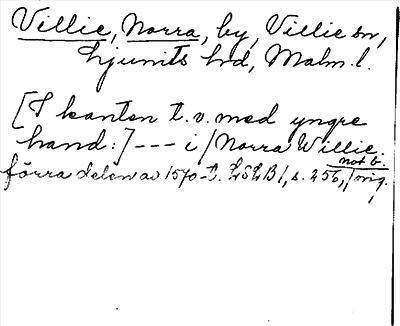 Villie, Norra, by, Villie sn,
Ljunits hd, Malm. l.
[I kanten t. v. med yngre
hand:] --- i / Norra Willie.
not b.
förra delen av 1570-t. LSLB 1, s. 256, / orig.